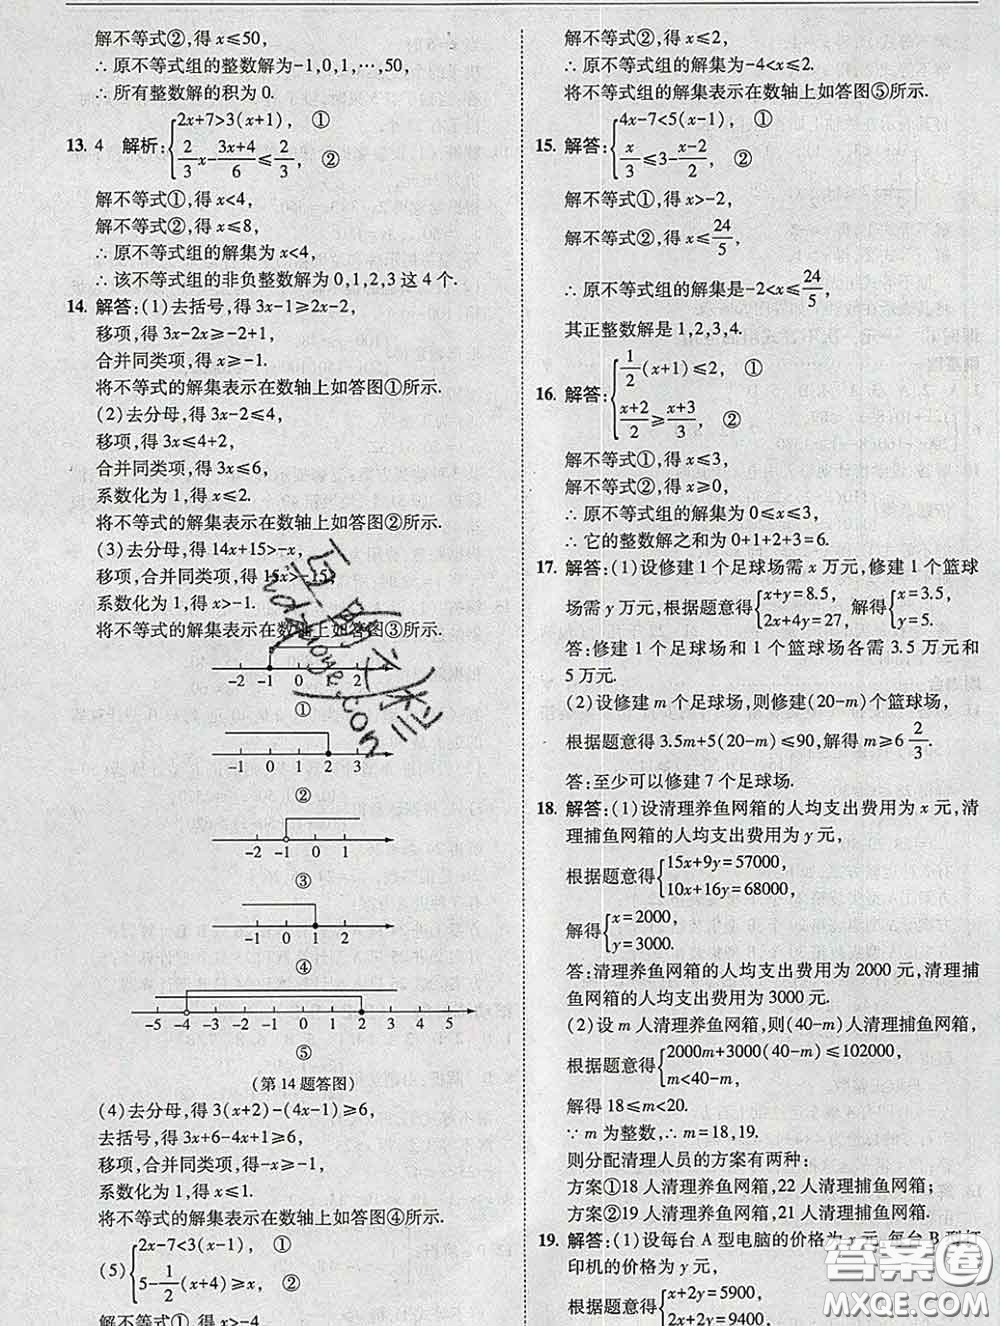 解不等式②,得 x≤50,
∴ 原不等式组的整数解为-1,0,1,…,50,
∴ 所有整数解的积为 0.
13. 4 解析: {2x+7>3(x+1), ①
2/3x-(3x+4)/6≤2/3, ②
解不等式①,得 x<4,
解不等式②,得 x≤8,
∴ 原不等式组的解集为 x<4,
∴ 该不等式组的非负整数解为 0,1,2,3 这 4 个.
14. 解答:(1)去括号,得 3x-1≥2x-2,
移项,得 3x-2x≥-2+1,
合并同类项,得 x≥-1.
将不等式的解集表示在数轴上如答图①所示.
(2)去分母,得 3x-2≤4,
移项,得 3x≤4+2,
合并同类项,得 3x≤6,
系数化为 1,得 x≤2.
将不等式的解集表示在数轴上如答图②所示.
(3)去分母,得 14x+15>-x,
移项,合并同类项,得 15x>-15,
系数化为 1,得 x>-1.
将不等式的解集表示在数轴上如答图③所示.
-2 -1 0 1 2
①
-1 0 1 2 3
②
-2 -1 0 1
③
-1 0 1 2
④
-5 -4 -3 -2 -1 0 1 2 3 4 5
⑤
(第 14 题答图)
(4)去分母,得 3(x+2)-(4x-1)≥6,
去括号,得 3x+6-4x+1≥6,
移项,合并同类项,得-x≥-1,
系数化为 1,得 x≤1.
将不等式的解集表示在数轴上如答图④所示.
(5) {2x-7<3(x-1), ①
5-1/2(x+4)≥x, ②
解不等式①,得 x>-4,
解不等式②,得 x≤2,
∴ 原不等式组的解集为-4<x≤2.
将不等式组的解集表示在数轴上如答图⑤所示.
15. 解答: {4x-7<5(x-1), ①
x/3≤3-(x-2)/2, ②
解不等式①,得 x>-2,
解不等式②,得 x≤24/5,
∴ 原不等式组的解集是-2<x≤24/5,
其正整数解是 1,2,3,4.
16. 解答: {1/2(x+1)≤2, ①
(x+2)/2≥(x+3)/3, ②
解不等式①,得 x≤3,
解不等式②,得 x≥0,
∴ 原不等式组的解集为 0≤x≤3,
∴ 它的整数解之和为 0+1+2+3=6.
17. 解答:(1)设修建 1 个足球场需 x 万元,修建 1 个篮球
场需 y 万元,根据题意得{x+y=8.5, 2x+4y=27, 解得{x=3.5, y=5.
答:修建 1 个足球场和 1 个篮球场各需 3.5 万元和
5 万元.
(2)设修建 m 个足球场,则修建(20-m)个篮球场,
根据题意得 3.5m+5(20-m)≤90,解得 m≥6 2/3.
答:至少可以修建 7 个足球场.
18. 解答:(1)设清理养鱼网箱的人均支出费用为 x 元,清
理捕鱼网箱的人均支出费用为 y 元,
根据题意得{15x+9y=57000,
10x+16y=68000,
解得{x=2000,
y=3000.
答:清理养鱼网箱的人均支出费用为 2000 元,清理捕
鱼网箱的人均支出费用为 3000 元.
(2)设 m 人清理养鱼网箱,则(40-m)人清理捕鱼网箱,
根据题意得{2000m+3000(40-m)≤102000,
m<40-m,
解得 18≤m<20.
∵ m 为整数,∴ m=18,19.
则分配清理人员的方案有两种:
方案①18 人清理养鱼网箱,22 人清理捕鱼网箱;
方案②19 人清理养鱼网箱,21 人清理捕鱼网箱.
19. 解答:(1)设每台 A 型电脑的价格为 x 元,每台 B 型打
印机的价格为 y 元,
根据题意得{x+2y=5900,
2x+2y=9400,
答案圈
MXQE.COM